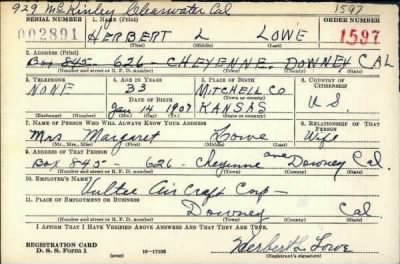 929 McKinley Clearwater Cal
SERIAL NUMBER 1. NAME (Print) ORDER NUMBER
1597
002891 HERBERT L LOWE 1597
(First) (Middle) (Last)
2. ADDRESS (Print)
Box 845 - 626 - CHEYENNE. DOWNEY CAL
(Number and street or R. F. D. number) (Town) (County) (State)
3. TELEPHONE 4. AGE IN YEARS 5. PLACE OF BIRTH 6. COUNTRY OF CITIZENSHIP
NONE 33 MITCHELL CO
DATE OF BIRTH (Town or county)
Jan 14 1907 KANSAS U S.
(Mo.) (Day) (Yr.) (State or country)
7. NAME OF PERSON WHO WILL ALWAYS KNOW YOUR ADDRESS 8. RELATIONSHIP OF THAT PERSON
Mrs. Margaret Lowe Wife
(Mr., Mrs., Miss) (First) (Middle) (Last)
9. ADDRESS OF THAT PERSON
Box 845 - 626 - Cheyenne ave Downey Cal.
(Number and street or R. F. D. number) (Town) (County) (State)
10. EMPLOYER'S NAME
Vultee AirCraft Corp -
11. PLACE OF EMPLOYMENT OR BUSINESS
Downey Cal.
(Number and street or R. F. D. number) (Town) (County) (State)
I AFFIRM THAT I HAVE VERIFIED ABOVE ANSWERS AND THAT THEY ARE TRUE.
REGISTRATION CARD
D. S. S. Form 1 (over) 16-17105 Herbert L. Lowe
(Registrant's signature)